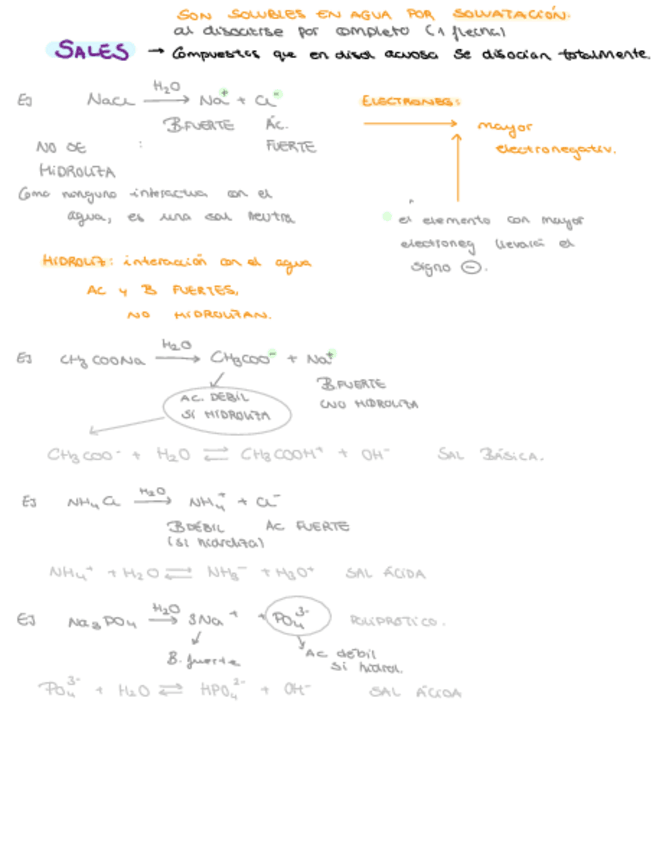 SON SOLUBLES EN AGUA POR SOLVATACCIÓN.
al disociarse por completo (1 flecha)
SALES → Compuestos que en disol acuosa se disocian totalmente.
Ej NaCl H₂O → Na⁺ + Cl⁻
B.FUERTE ÁC. FUERTE
NO SE HIDROLITA
Como ninguno interactua con el
agua, es una sal neutra
ELECTRONEG:
mayor
electronegativ.
el elemento con mayor
electroneg llevará el
signo ⊖.
HIDROLIZ: interacción con el agua
AC y B FUERTES,
NO HIDROLITAN.
Ej CH₃COONa H₂O → CH₃COO⁻ + Na⁺
AC. DEBIL
SI HIDROLITA
B.FUERTE
(NO HIDROLITA
CH₃COO⁻ + H₂O ⇌ CH₃COOH⁺ + OH⁻ SAL BÁSICA.
Ej NH₄Cl H₂O → NH₄⁺ + Cl⁻
B DÉBIL AC FUERTE
(si hidroliza)
NH₄⁺ + H₂O ⇌ NH₃⁻ + H₃O⁺ SAL ÁCIDA
Ej Na₃PO₄ H₂O → 3Na⁺ + PO₄³⁻ POLIPROTICO.
B. fuerte
Ac débil
si hidrol
PO₄³⁻ + H₂O ⇌ HPO₄²⁻ + OH⁻ SAL ÁCIDA